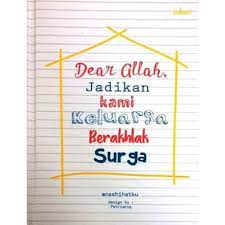 Dear Allah,
Jadikan
kami
Keluarga
Berakhlak
Surga
@nasihatku
design by :
Patrianis